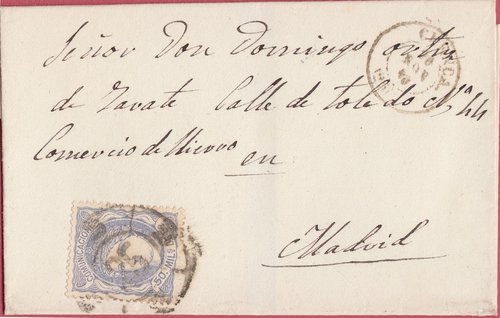 Señor Don Domingo ortiz
de Zarate Calle de toledo Nº 44
Comercio de Hierro
en
Madrid
CUENCA
COMUNICACIONES
50 MILS